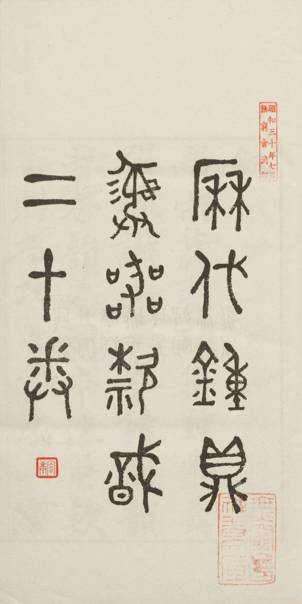 厤代鍾鼎
彝器款識
二十卷